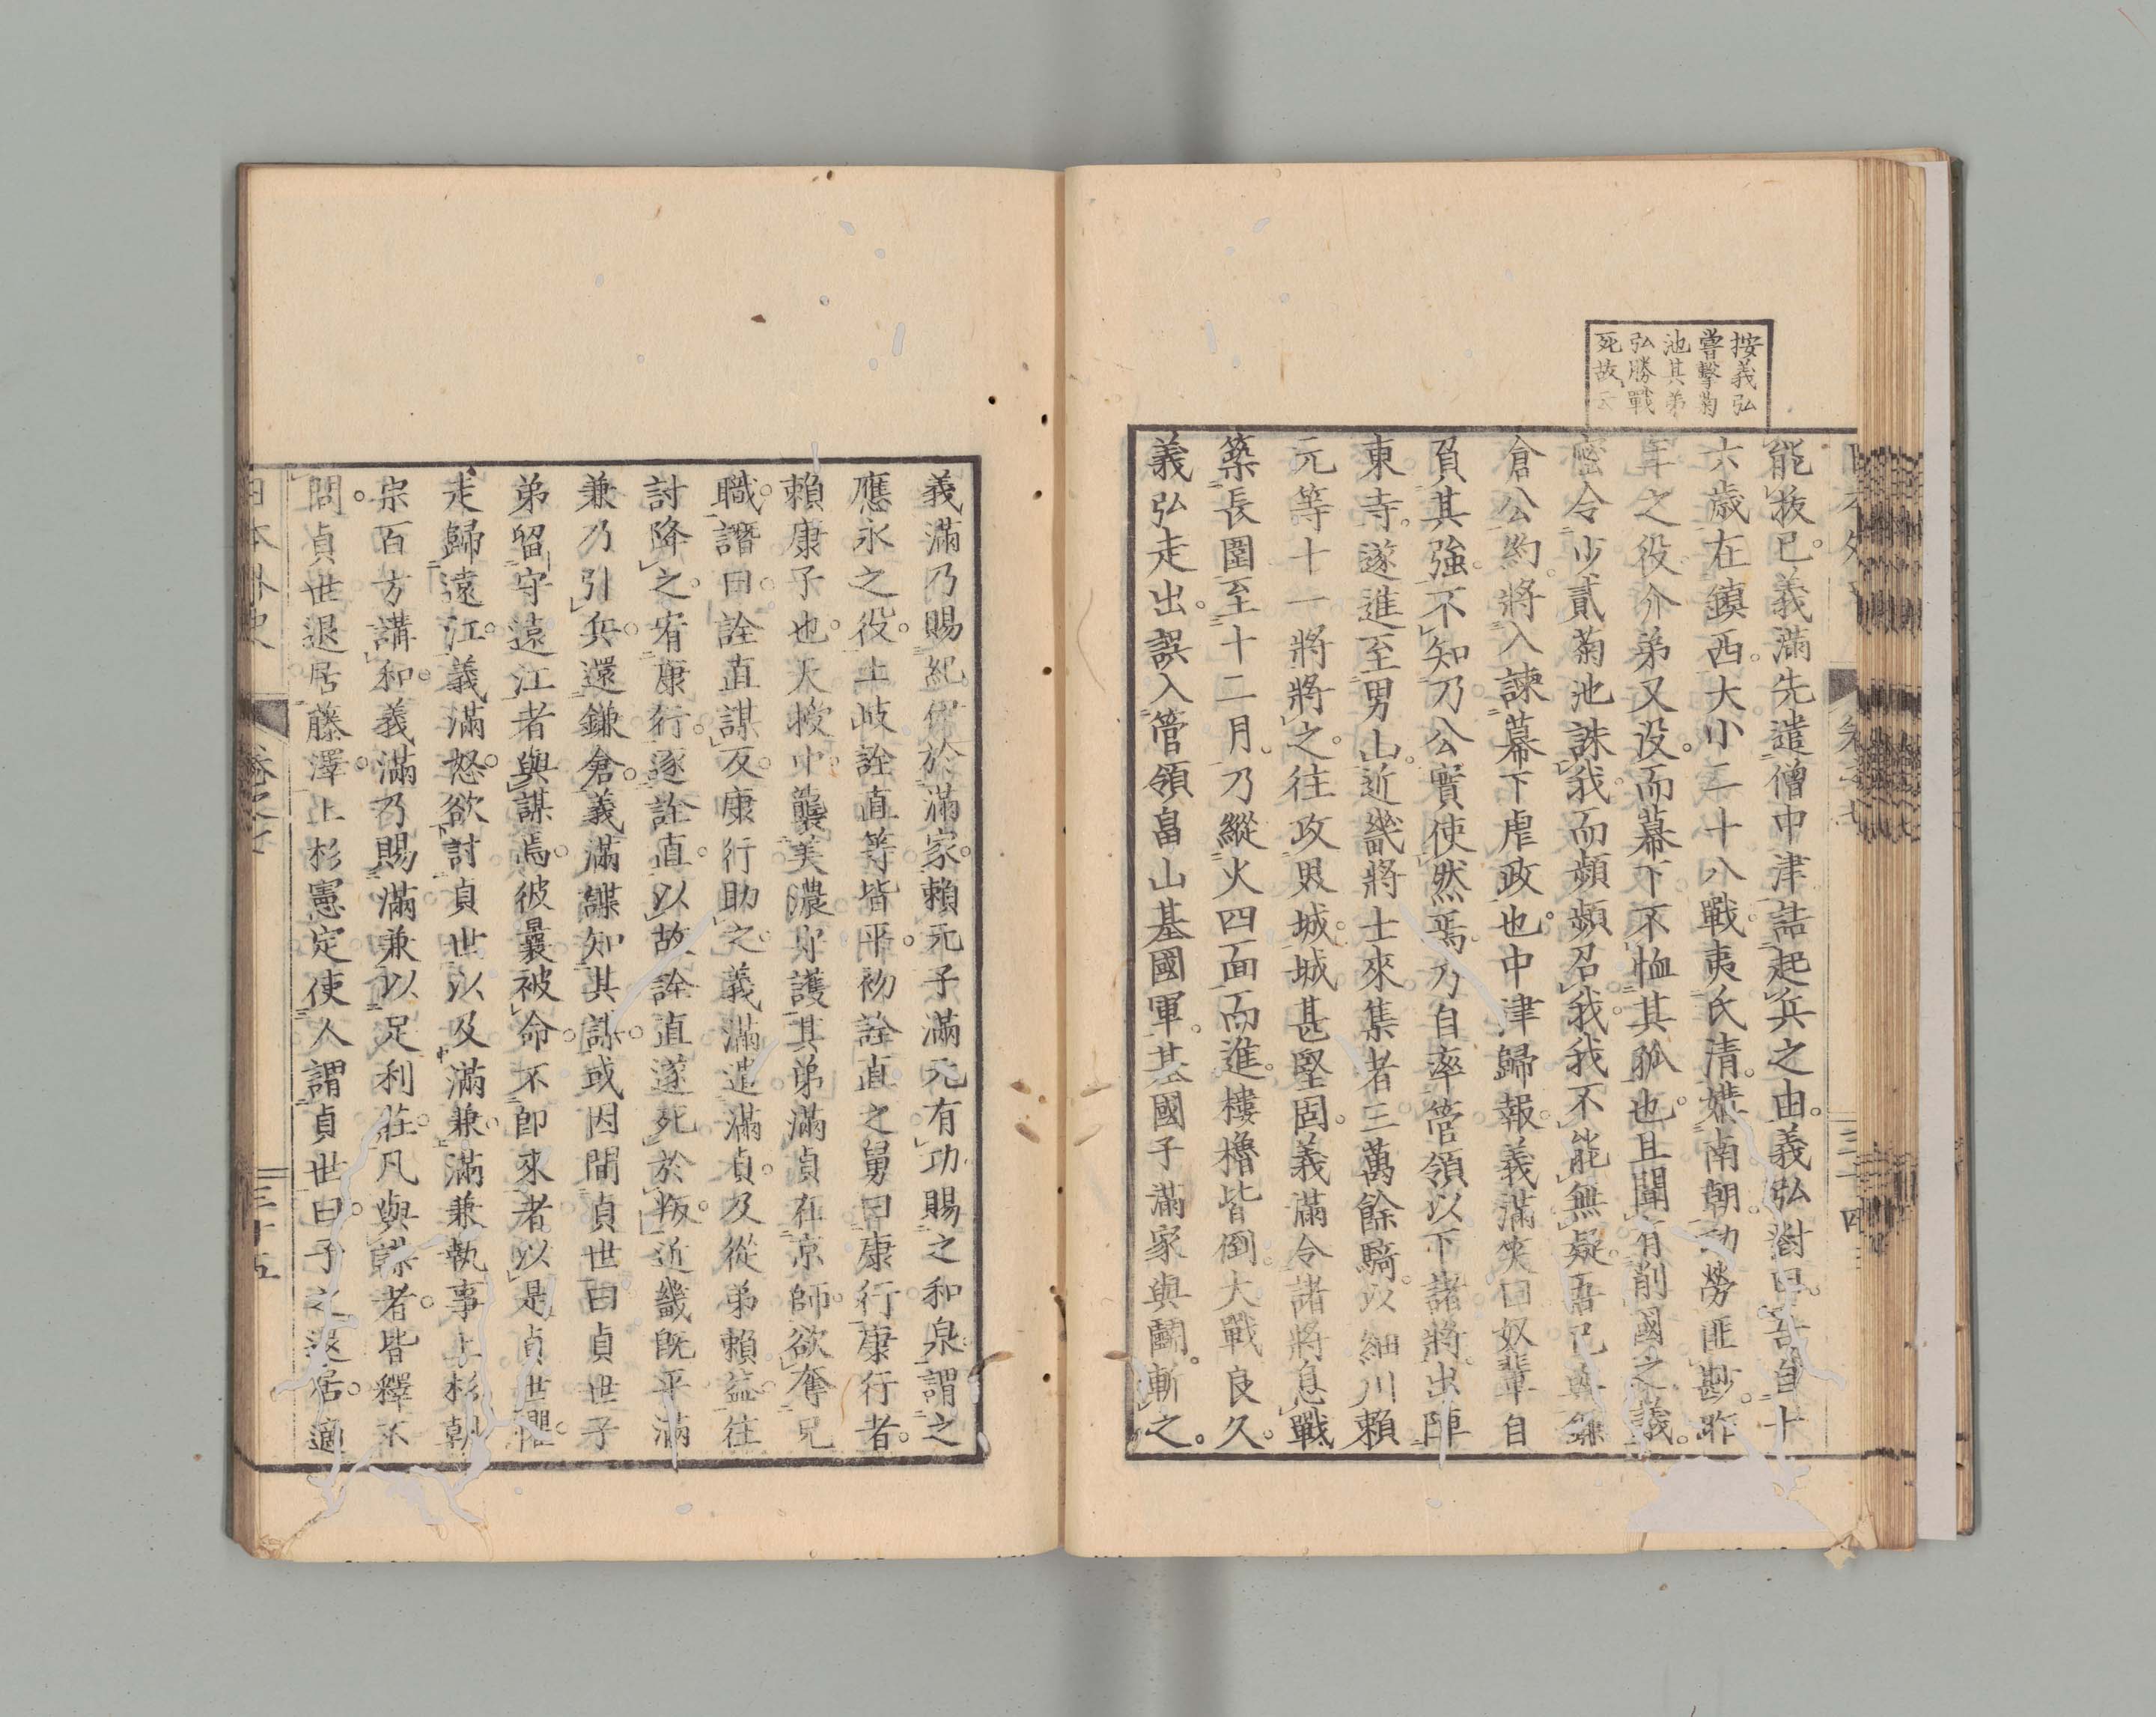 按義弘
嘗擊菊
池其弟
弘勝戰
死故云
能拔已義滿先遣僧中津詰起兵之由義弘對曰吾自十
六歲在鎭西大小二十八戰夷氏清媒南朝功勞匪尠昨
年之役介弟又沒而幕下不恤其孤也且聞有削國之議
密令少貳菊池誅我而頻頻召我我不能無疑吾已與鎌
倉公約將入諫幕下虐政也中津歸報義滿笑曰奴輩自
負其強不知乃公實使然焉乃自率管領以下諸將出陣
東寺遂進至男山近畿將士來集者三萬餘騎以細川賴
元等十一將將之往攻界城城甚堅固義滿令諸將息戰
築長圍至十二月乃縱火四面而進樓櫓皆倒大戰良久
義弘走出誤入管領畠山基國軍基國子滿家與鬭斬之
三十四
義滿乃賜紀伊於滿家賴元子滿元有功賜之和泉謂之
應永之役土岐詮直等皆平初詮直之舅曰康行康行者
賴康子也天授中襲美濃守護其弟滿貞在京師欲奪兄
職譖曰詮直謀反康行助之義滿遣滿貞及從弟賴益往
討降之宥康行逐詮直以故詮直遂死於叛近畿既平滿
兼乃引兵還鎌倉義滿諜知其謀或因間貞世曰貞世子
弟留守遠江者與謀焉彼曩被命不卽來者以是貞世懼
走歸遠江義滿怒欲討貞世以及滿兼滿兼執事上杉朝
宗百方講和義滿乃賜滿兼以足利莊凡與謀者皆釋不
問貞世退居藤澤上杉憲定使人謂貞世曰子之退居適
日本外史 卷之七 三十五